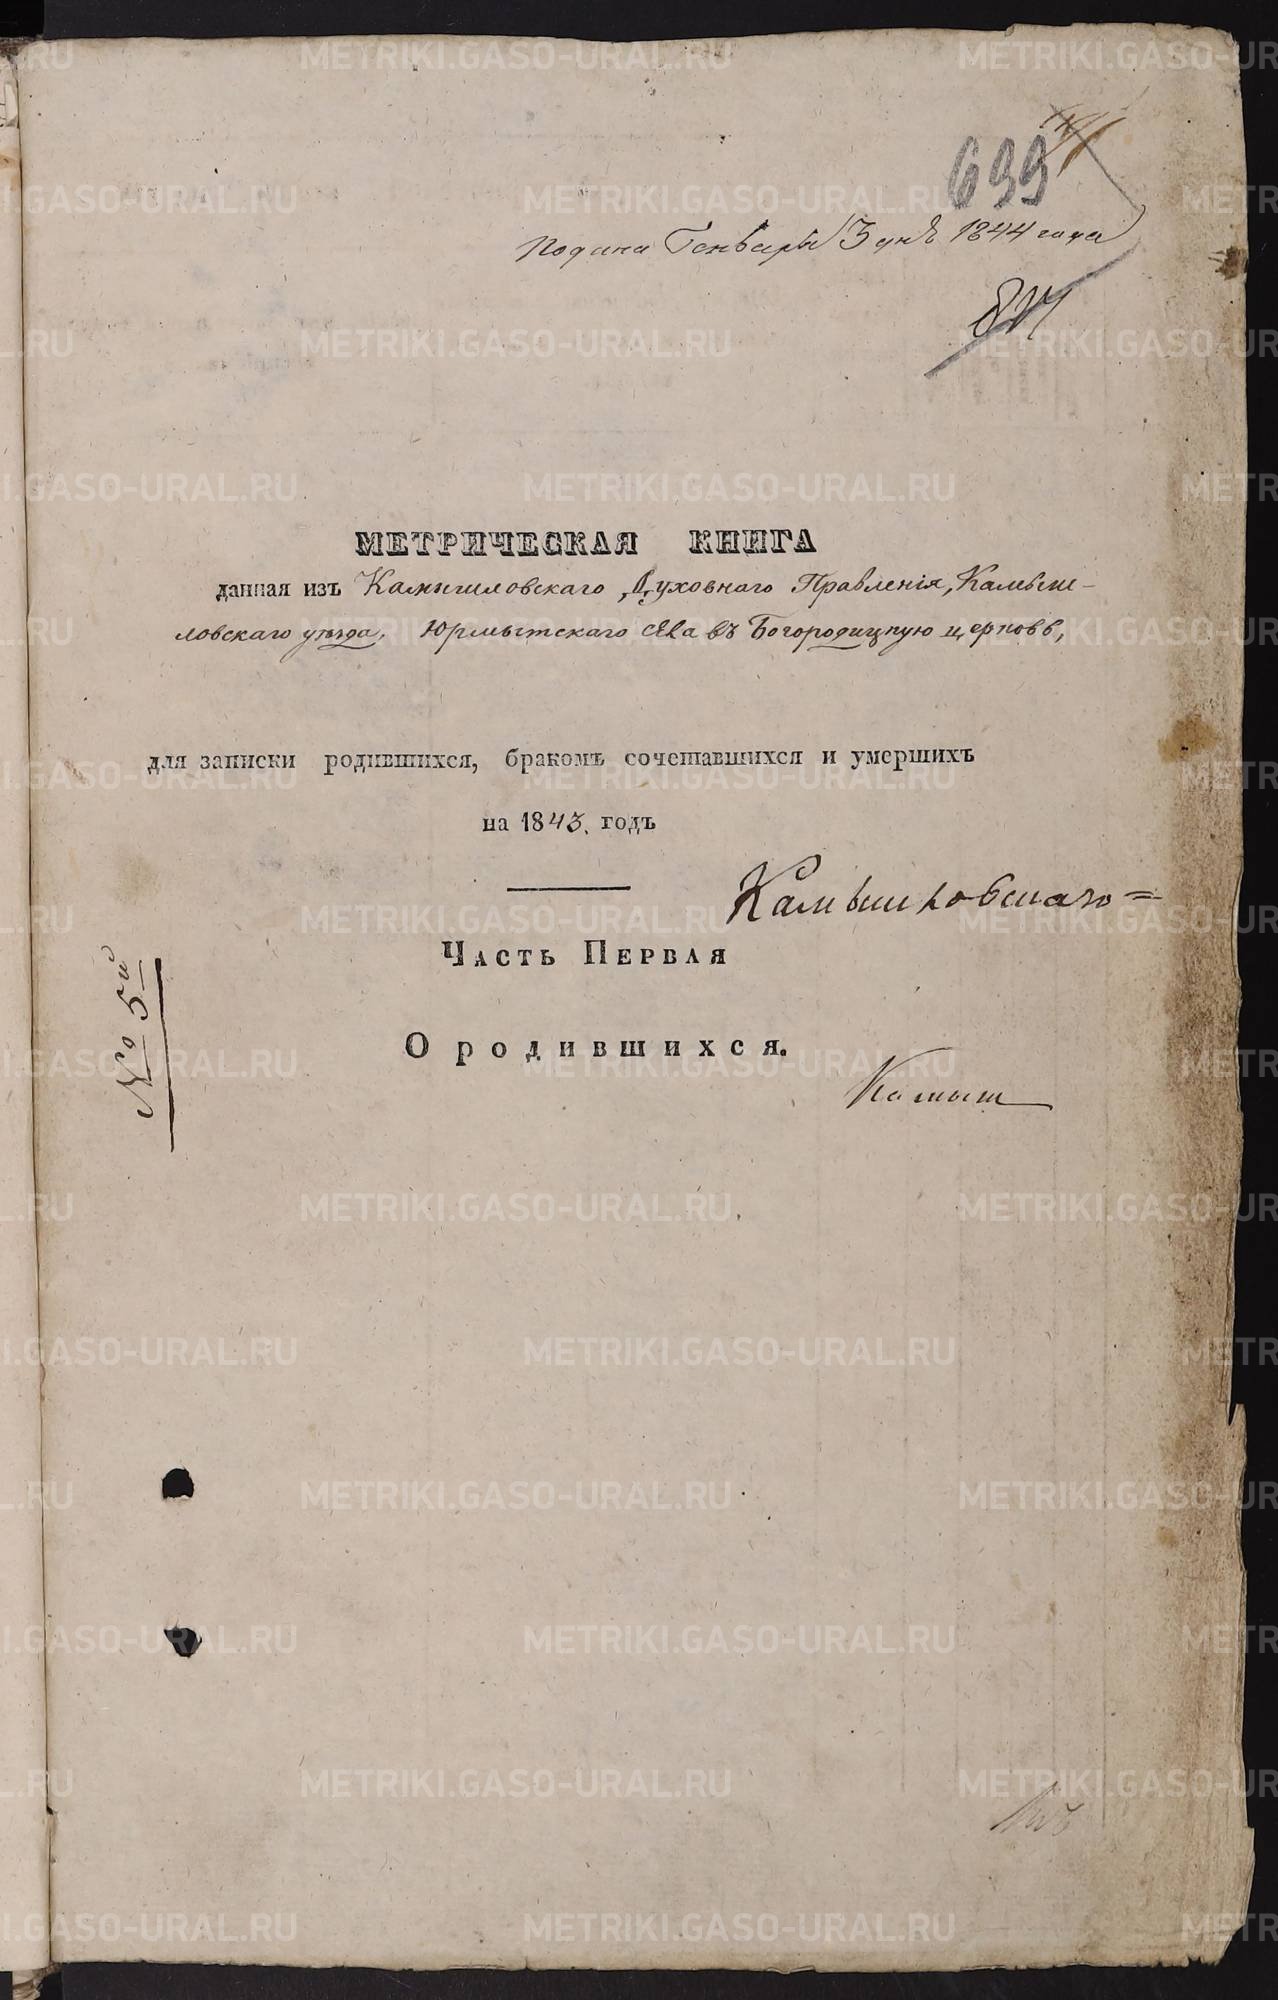 699
Подана Генваря 3 дня 1844 года
МЕТРИЧЕСКАЯ КНИГА
данная изъ Камышловскаго Духовнаго Правленія, Камыш-
ловскаго уѣзда, Юрмытскаго села въ Богородицкую церковь,
для записки родившихся, бракомъ сочетавшихся и умершихъ
на 1843. годъ
Камышловскаго =
Часть Первая
№ 5й
О родившихся.
Камыш
METRIKI.GASO-URAL.RU